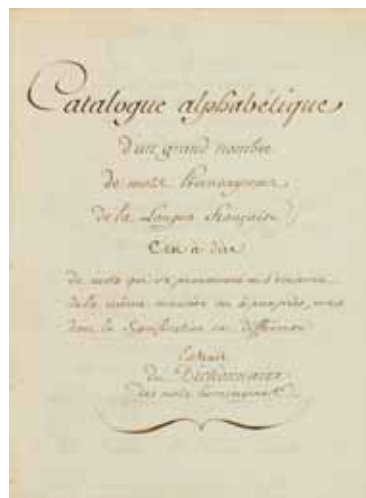 Catalogue alphabétique
d'un grand nombre
de mots homonymes
de la Langue Française
C'est à dire
de mots qui se prononcent ou s'écrivent
de la même manière ou à peu près, mais
dont la signification est différente
Extrait
du Dictionnaire
des mots homonymes